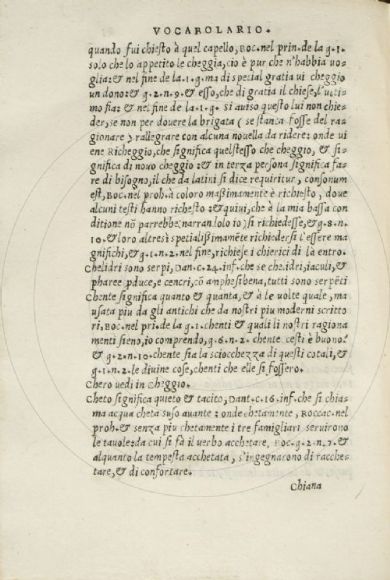 VOCABOLARIO.
quando fui chiesto à quel capello, BOC. nel prin. de la g. 1.
solo che lo appetito le cheggia, cio è pur che n'habbia uo
glia: & nel fine de la .1. g. ma di special gratia ui cheggio
un dono: & g. 2. n. 9. & esso, che di gratia il chiese, l'
mo fia: & nel fine de la .1. g. si auiso questo lui non chie=
der, se non per douere la brigata (se stanca fosse del ra=
gionare) rallegrare con alcuna nouella da ridere: onde ui
ene Richeggio, che significa quelstesso che cheggio, & si=
gnifica di nouo cheggio : & in terza persona significa fa=
re di bisogno, il che da latini si dice requiritur, consonum
est, BOC. nel proh. à coloro maßimamente è richiesto, doue
alcuni testi hanno richesto : & quiui, che à la mia bassa con
ditione nõ parrebbe narran(olo io) si richiedesse, & g. 8. n.
10. & loro altresì specialißimamẽte richiedersi l'essere ma
gnifichi, & g. 1. n. 2. nel fine, richiese i chierici di là entro.
Chelidri sono serpi, DAN. c. 24. inf. che se chelidri, iaculi, &
pharee pduce, e cencri, cõ amphesibena, tutti sono serpẽti
Chente significa quanto & quanta, & à le uolte quale, ma
usata piu da gli antichi che da nostri piu moderni scritto
ri, BOC. nel pri. de la g. 1. chenti & quali li nostri ragiona
menti sieno, io comprendo, g. 6. n. 2. chente cesti è buono?
& g. 2. n. 10. chente sia la sciocchezza di questi cotali, &
g. 1. n. 2. le diuine cose, chenti che elle si fossero.
Chero uedi in Cheggio.
Cheto significa quieto & tacito, DANT. c. 16. inf. che si chia=
ma acqua cheta suso auante : onde chetamente, BOCCAC. nel
proh. & senza piu chetamente i tre famigliari seruirono
le tauole: da cui si fà il uerbo acchetare, BOC. g. 2. n. 7. &
alquanto la tempesta acchetata, s'ingegnarono di racche=
tare, & di confortare.
Chiana